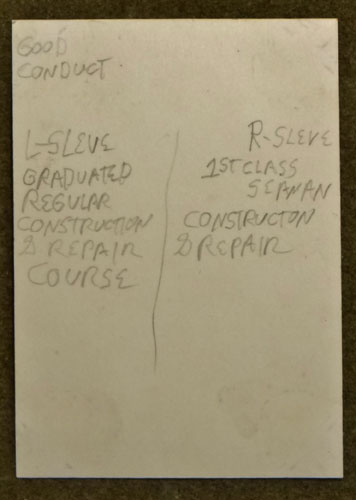 GOOD
CONDUCT
L-SLEVE
GRADUATED
REGULAR
CONSTRUCTION
& REPAIR
COURSE
R-SLEVE
1ST CLASS
SEAMAN
CONSTRUCTON
& REPAIR